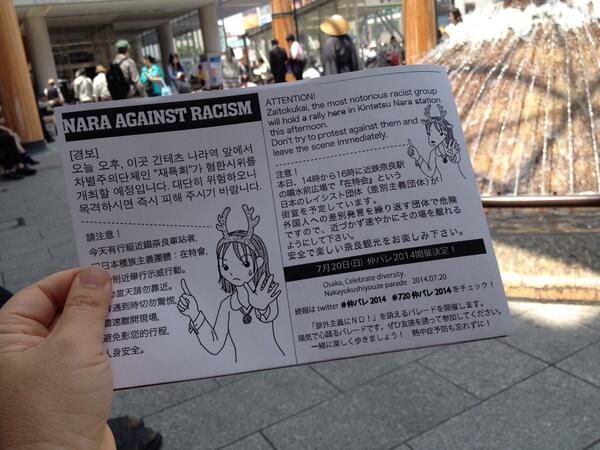 NARA AGAINST RACISM
[경보]
오늘 오후, 이곳 긴테츠 나라역 앞에서
차별주의단체인 "재특회"가 혐한시위를
개최할 예정입니다. 대단히 위험하오니
목격하시면 즉시 피해 주시기 바랍니다.
請注意！
今天有行經近鐵奈良車站者,
日本種族主義團體：在特會,
附近舉行示威行動。
當天請勿靠近。
遇到時切勿驚慌,
速離開現場,
避免影您的行程,
人身安全。
ATTENTION!
Zaitokukai, the most notorious racist group
will hold a rally here in Kintetsu Nara station
this afternoon.
Don't try to protest against them and
leave the scene immediately.
注意！
本日、14時から16時に近鉄奈良駅
の噴水前広場で『在特会』という
日本のレイシスト団体（差別主義団体）が
街宣を予定しています。
外国人への差別発言を繰り返す団体で危険
ですので、近づかず速やかにその場を離れる
ようにして下さい。
安全で楽しい奈良観光をお楽しみ下さい。
7月20日(日) 仲パレ2014開催決定！
Osaka, Celebrate diversity.
Nakayokushiyouze parade 2014.07.20
続報は twitter #仲パレ2014 #720仲パレ2014 をチェック！
「排外主義にNO!」を訴えるパレードを開催します。
陽気で心踊るパレードです。ぜひ友達を誘って参加してください。
一緒に楽しく歩きましょう！ 熱中症予防も忘れずに！